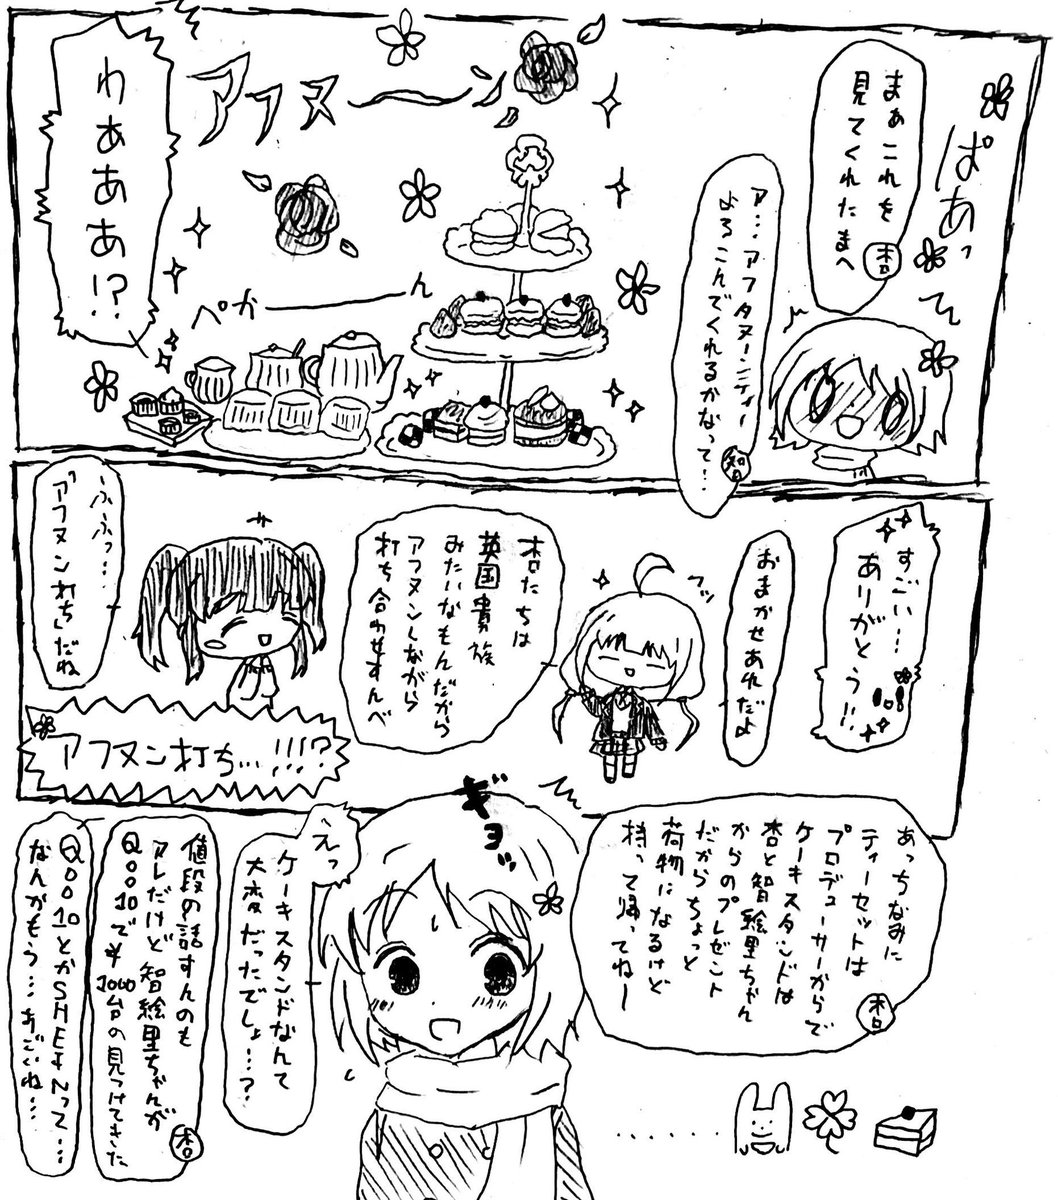 ぱあっ
まぁこれを
見てくれたまへ
杏
ア…アフタヌーンティー
よろこんでくれるかなって…
智
アフヌ〜ン
ぺかーーん
わぁああ!?
すごい…
ありがとう!!
おまかせあれだよ
フッ
杏たちは
英国貴族
みたいなもんだから
アフヌンしながら
打ち合わせすんべ
ふふっ…
「アフヌン打ち」だね
アフヌン打ち…!!!?
あっちなみに
ティーセットは
プロデューサーからで
ケーキスタンドは
杏と智絵里ちゃん
からのプレゼント
だからちょっと
荷物になるけど
持って帰ってね〜
杏
ギョッ
えっ
ケーキスタンドなんて
大変だったでしょ…?
値段の話すんのも
アレだけど智絵里ちゃんが
Qoo10で¥1000台の見つけてきた
杏
Qoo10とかSHEINって…
なんかもう…すごいね…